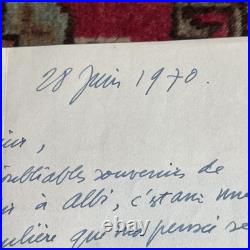 28 Juin 1970.
eur,
oubliables souvenirs de
r à Albi, c'est avec une
ulière que ma pensée se